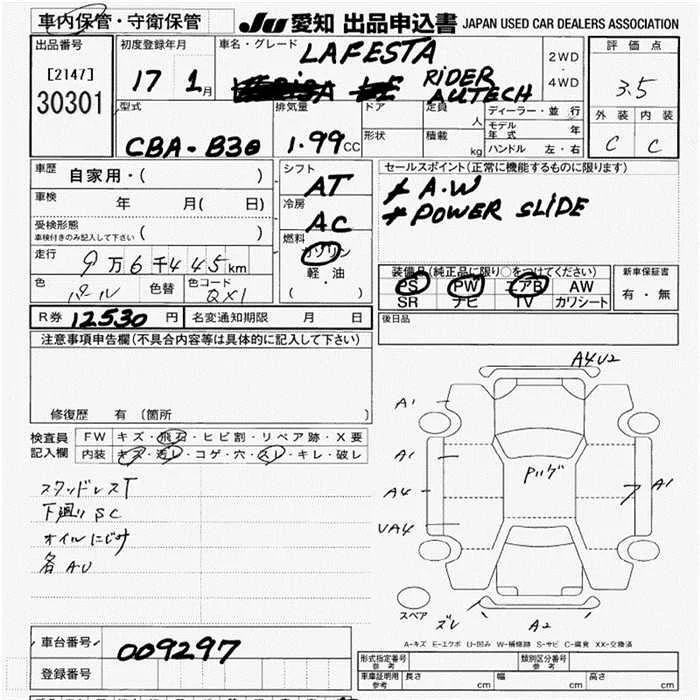 車内保管・守衛保管 JU 愛知 出品申込書 JAPAN USED CAR DEALERS ASSOCIATION
出品番号 [2147] 30301
初度登録年月 17 1月
車名・グレード LAFESTA RiDER AUTECH
2WD・4WD
評価点 3.5
外装 内装
C C
型式 CBA-B30
排気量 1.99CC
ドア 定員 人
形状 積載 kg
ディーラー・並行
モデル年式 年
ハンドル 左・右
車歴 自家用・( )
車検 年 月( 日)
受検形態 ( )
車検付きのみ記入して下さい
走行 9万6千445km
色 パール 色替 色コード QX1
シフト AT
冷房 AC
燃料 ガソリン
軽・油
( )
セールスポイント(正常に機能するものに限ります)
A.W
POWER SLIDE
装備品(純正品に限り○をつけてください)
PS PW エアB AW
SR ナビ TV カワシート
新車保証書
有・無
R券 12530円 名変通知期限 月 日
後日品
注意事項申告欄(不具合内容等は具体的に記入して下さい)
修復歴 有 (箇所 )
検査員記入欄
FW キズ・飛石・ヒビ割・リペア跡・X要
内装 キズ・汚レ・コゲ・穴・スレ・キレ・破レ
スタッドレスT
下廻りSC
オイルにじみ
各AU
A4U2
A1
A1
A4
A1
UA4
スペア
ズレ
A2
A-キズ E-エクボ U-凹み W-補修跡 S-サビ C-腐食 XX-交換済
車台番号 009297
登録番号
形式指定番号 参考 類別区分番号 参考
車庫証明用 参考 長さ cm 幅 cm 高さ cm